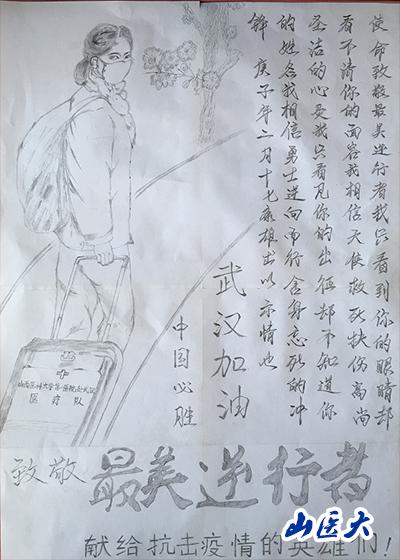 使命致敬最美逆行者我只看到你的眼睛却
看不清你的面容我相信天使救死扶伤高尚
圣洁的心灵我只看见你的出征却不知道你
的姓名我相信勇士逆向而行舍身忘死的冲
锋 庚子年二月十七 雄出以示情也
武汉加油
中国必胜
山西医科大学第一医院赴武汉
医疗队
致敬 最美逆行者
山医大
献给抗击疫情的英雄们！